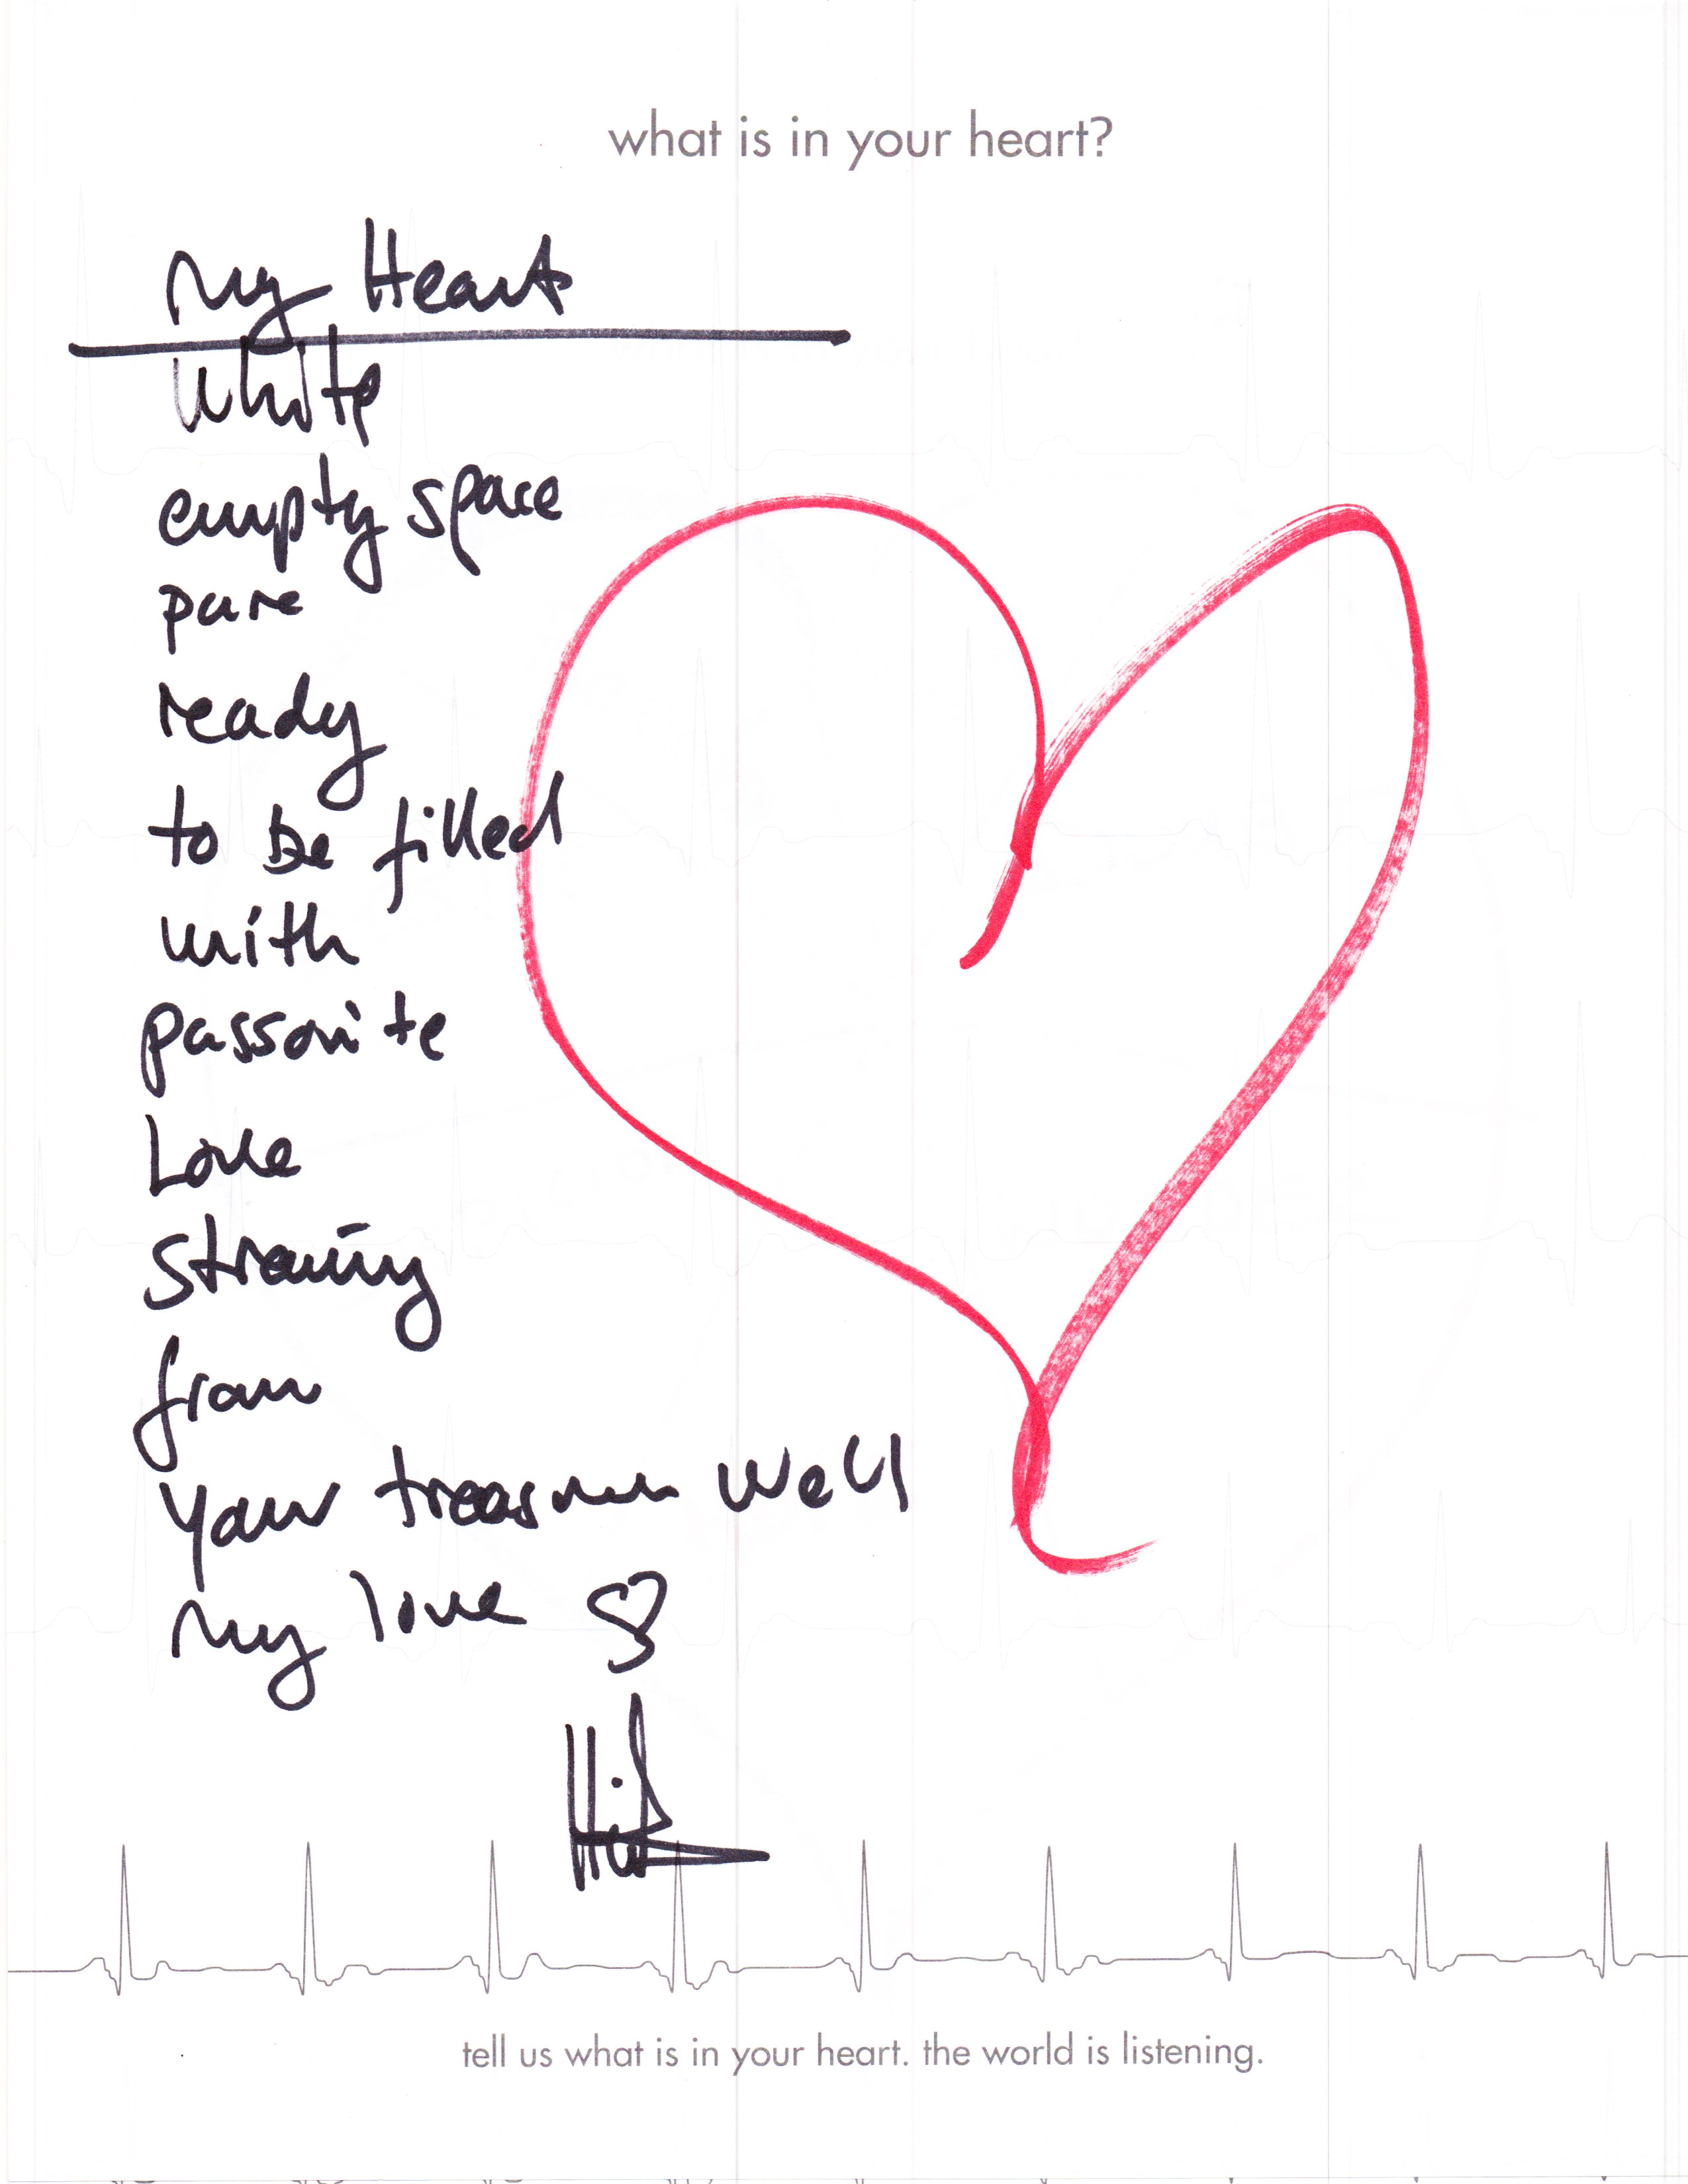 what is in your heart?
My Heart
White
empty space
pure
ready
to be filled
with
passonite
Love
streaming
from
Your treasure well
my love
tell us what is in your heart. the world is listening.